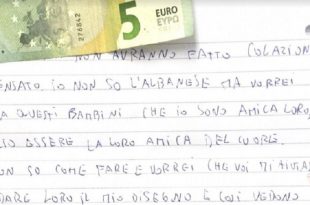 5 EURO
ΕΥΡΩ
276842
NON AVRANNO FATTO COLAZION
ENSATO IO NON SO L'ALBANESE MA VORREI
A QUESTI BAMBINI CHE IO SONO AMICA LORO,
IO ESSERE LA LORO AMICA DEL CUORE.
ON SO COME FARE E VORREI CHE VOI MI AIUTA
DARE LORO IL MIO DISEGNO E COSÌ VEDONO